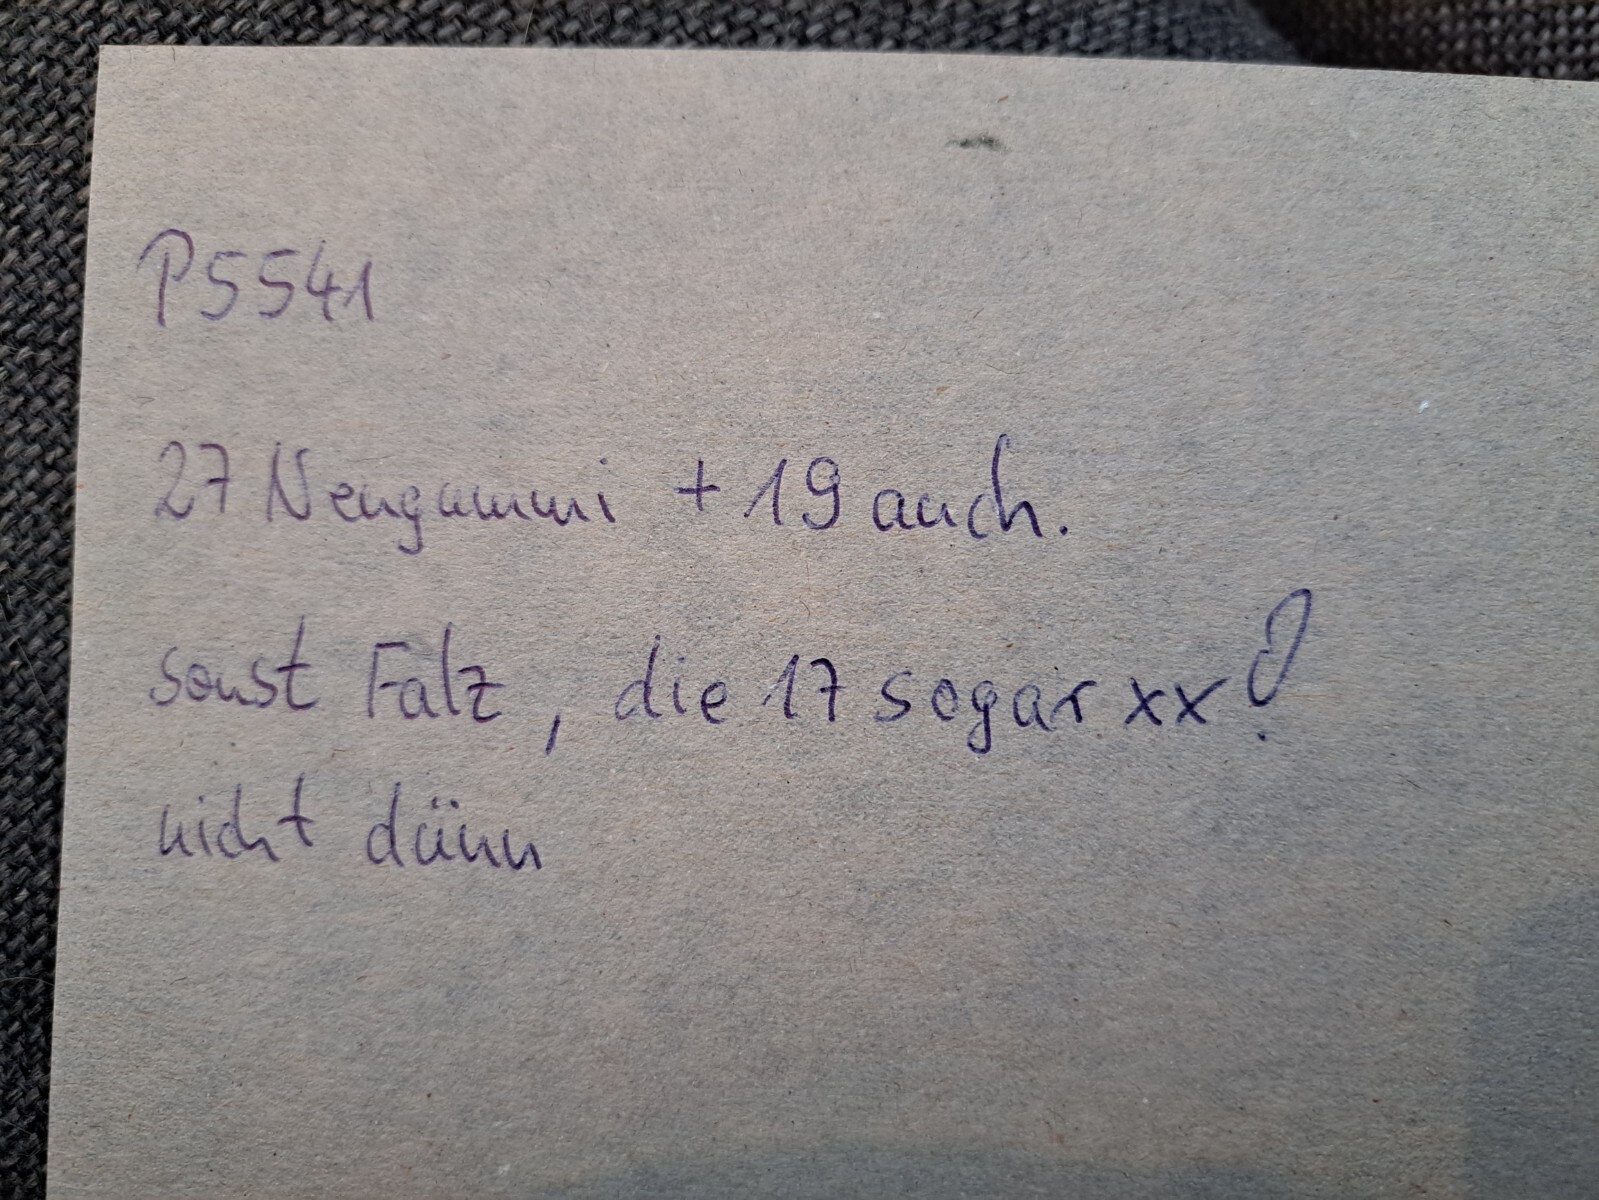 P5541
27 Neugummi + 19 auch.
sonst Falz, die 17 sogar xx?
nicht dünn